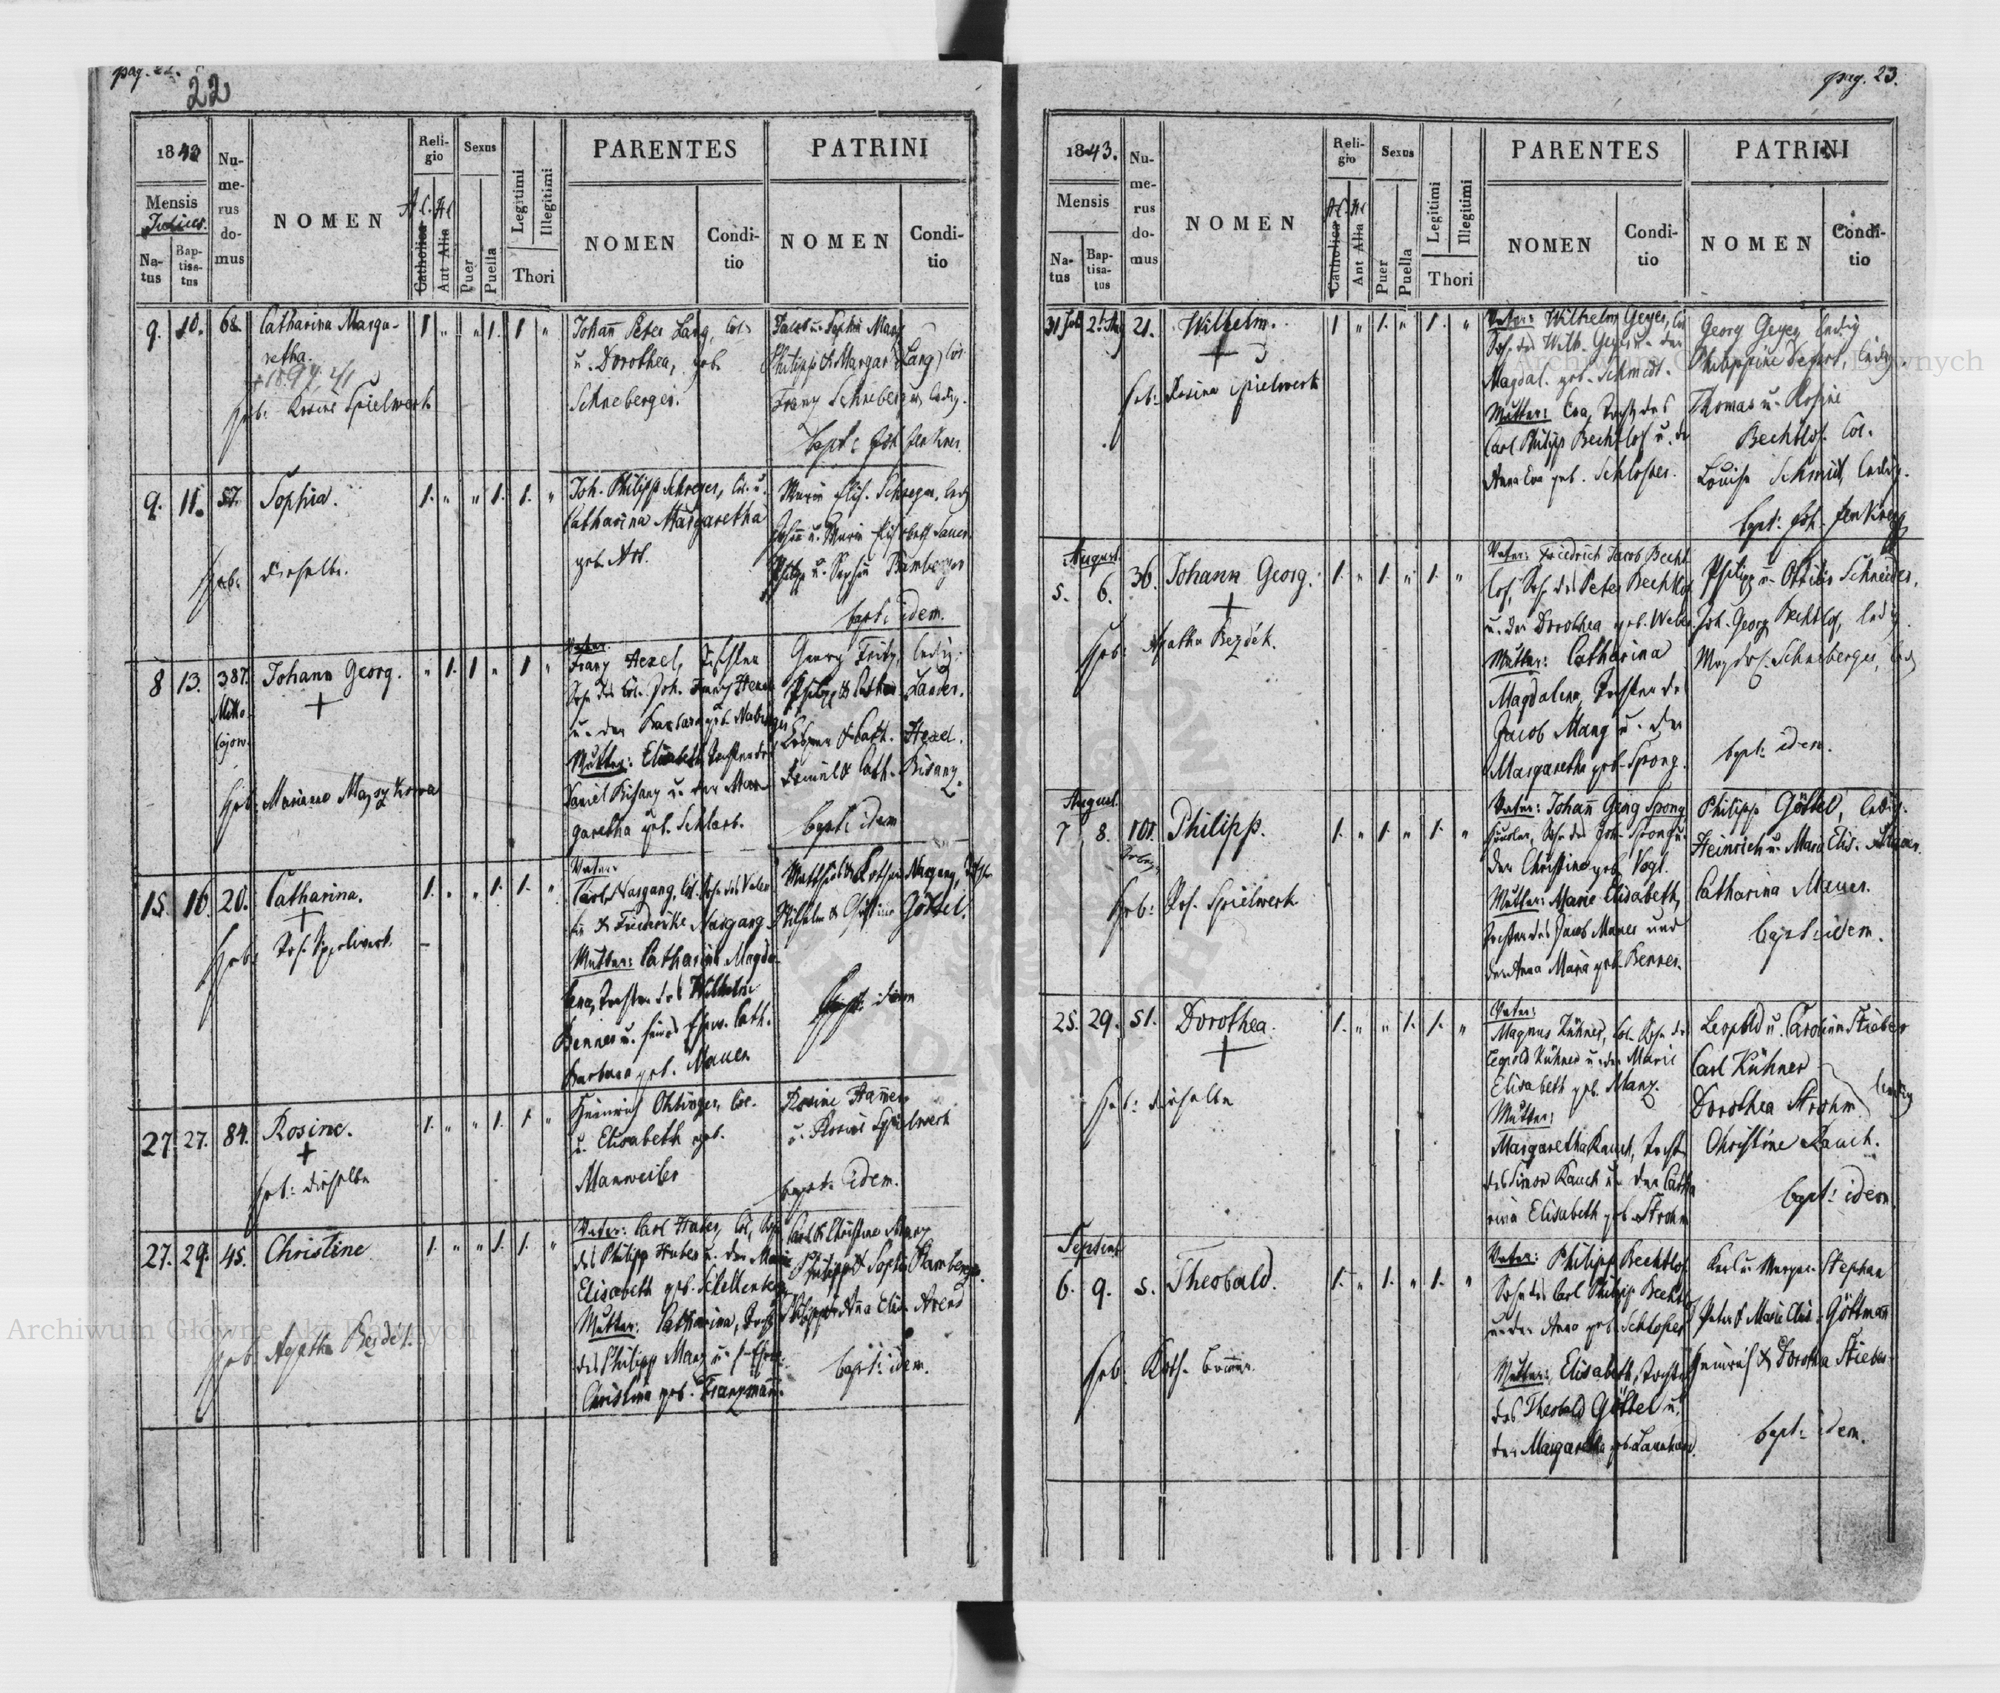 pag. 22.
22
1843
Nu-
me-
rus
do-
mus
NOMEN
Reli-
gio
Sexus
Legitimi
Illegitimi
PARENTES
PATRINI
Mensis
Julius.
Na-
tus
Bap-
tisa-
tus
A.C. H.C.
Catholica
Aut Alia
Puer
Puella
Thori
NOMEN
Condi-
tio
NOMEN
Condi-
tio
9. 10. 68. Catharina Marga- 1 " " 1. 1 "
retha.
Heb: Rosine Spielwerk
Johann Peter Lang, Col.
u. Dorothea, geb.
Schneberger.
Jacob u. Sophia Mang
Philipp & Margar. Lang, Col.
Franz Schneberger, ledig.
bapt: Joh. Jenkner.
9. 11. 57. Sophia. 1. " " 1. 1. "
Heb: dieselbe.
Joh. Philipp Schreyer, Col. u.
Catharina Margaretha
geb.
Maria Elis. Schreyer, ledig
Johann u. Maria Elisabeth Sauer
Philipp u. Sophia Bamberger
bapt: idem.
8 13. 387. Johann Georg. " 1. 1 " 1 "
Miko-
lajow.
Heb: Mariane
Vater:
Franz Hexel, Tischler
Sohn des Col. Joh. Franz Hexel
u. der Barbara geb.
Mutter: Elisabeth Tochter des
Daniel Bisanz u. der Mar-
garetha geb. Schlarb.
Georg Fritz, ledig.
Philipp & Cathar. Lauer.
& Cath. Hexel.
Daniel & Cath. Bisanz.
bapt: idem
15. 16. 20. Catharina. 1. " " 1. 1. "
Heb: Ros. Spielwerk.
Vater:
Carl Nargang, Col. Sohn des Valen-
tin & Friedericke Nargang
Mutter: Catharina Magda-
lena, Tochter des Wilhelm
Bennes u. seines Ehew. Cath.
Barbara geb. Mauer.
Matthias & Nargang,
Wilhelm & Christina Göttel.
bapt: idem
27. 27. 84. Rosine. 1. " " 1. 1 "
Heb: dieselbe
Heinrich Ohlinger, Col.
u. Elisabeth geb.
Manweiler
Rosine Hamer
u. Rosine Spielwerk
bapt: idem.
27. 29. 45. Christine 1. " " 1. 1. "
Heb: Agatha Bezdék.
Vater: Carl Huber, Col., Sohn
des Philipp Huber u. der Maria
Elisabeth geb. Schellenberg
Mutter: Catharina, Tochter
des Philipp Mang u. s. Ehew.
Christina geb. Franzmann.
Carl & Christine Mang
Philipp & Sophia Bamberger.
Philipp & Anna Elis. Arend
bapt: idem.
pag. 23.
1843.
Nu-
me-
rus
do-
mus
NOMEN
Reli-
gio
Sexus
Legitimi
Illegitimi
PARENTES
PATRINI
Mensis
Na-
tus
Bap-
tisa-
tus
A.C. H.C.
Catholica
Aut Alia
Puer
Puella
Thori
NOMEN
Condi-
tio
NOMEN
Condi-
tio
31 Jul 2t. Aug 21. Wilhelm. 1 " 1. " 1. "
Heb: Rosina Spielwerk
Vater: Wilhelm Geyer, Col.
Sohn des Wilh. Geyer u. der
Magdal. geb. Schmidt.
Mutter: Eva, Tochter des
Carl Philipp Bechtlof u. der
Anna Eva geb. Schlosser.
Georg Geyer, ledig
Philippine ledig.
Thomas u. Rosine
Bechtlof. Col.
Louise Schmidt, ledig.
bapt: Joh. Jenkner
August.
5. 6. 36. Johann Georg. 1. " 1. " 1. "
Heb: Agatha Bezdék.
Vater: Friedrich Jacob Becht-
lof, Sohn des Peter Bechtlof
u. der Dorothea geb. Weber.
Mutter: Catharina
Magdalena, Tochter des
Jacob Mang u. der
Margaretha geb. Spong.
Philipp u. Ottilie Schneider.
Joh. Georg Bechtlof, ledig.
Magdal. Schneberger, ledig
bapt: idem.
August.
7 8. 101. Philipp. 1. " 1. " 1. "
Heb: Ros. Spielwerk
Vater: Johann Georg Spong
Sohn des Joh. Spong u.
der Christina geb. Vogt.
Mutter: Marie Elisabeth,
Tochter des Jacob Mauer und
der Anna Maria geb. Bennes.
Philipp Göttel, ledig.
Heinrich u. Marg. Elis.
Catharina Mauer.
bapt: idem.
25. 29. 51. Dorothea. 1. " " 1. 1. "
Heb: dieselbe
Vater:
Magnus Kühner, Col. Sohn des
Leopold Kühner u. der Marie
Elisabeth geb. Manz.
Mutter:
Margaretha Rauch, Tochter
des Simon Rauch u. der Catha-
rina Elisabeth geb. Strohm
Leopold u. Carolina Stieber
Carl Kühner
Dorothea Strohm ledig
Christine Rauch.
bapt: idem
Septemb
6. 9. 5. Theobald. 1. " 1. " 1. "
Heb: Kath.
Vater: Philipp Bechtlof
Sohn des Carl Philipp Bechtlof
u. der Anna geb. Schlosser
Mutter: Elisabeth, Tochter
des Theobald Göttel u.
der Margaretha geb.
Karl u. Margar. Stephan
Peter & Marie Elis. Göttmann
Heinrich & Dorothea Stieber
bapt: idem.
Archiwum Główne Akt Dawnych
Archiwum Główne Akt Dawnych